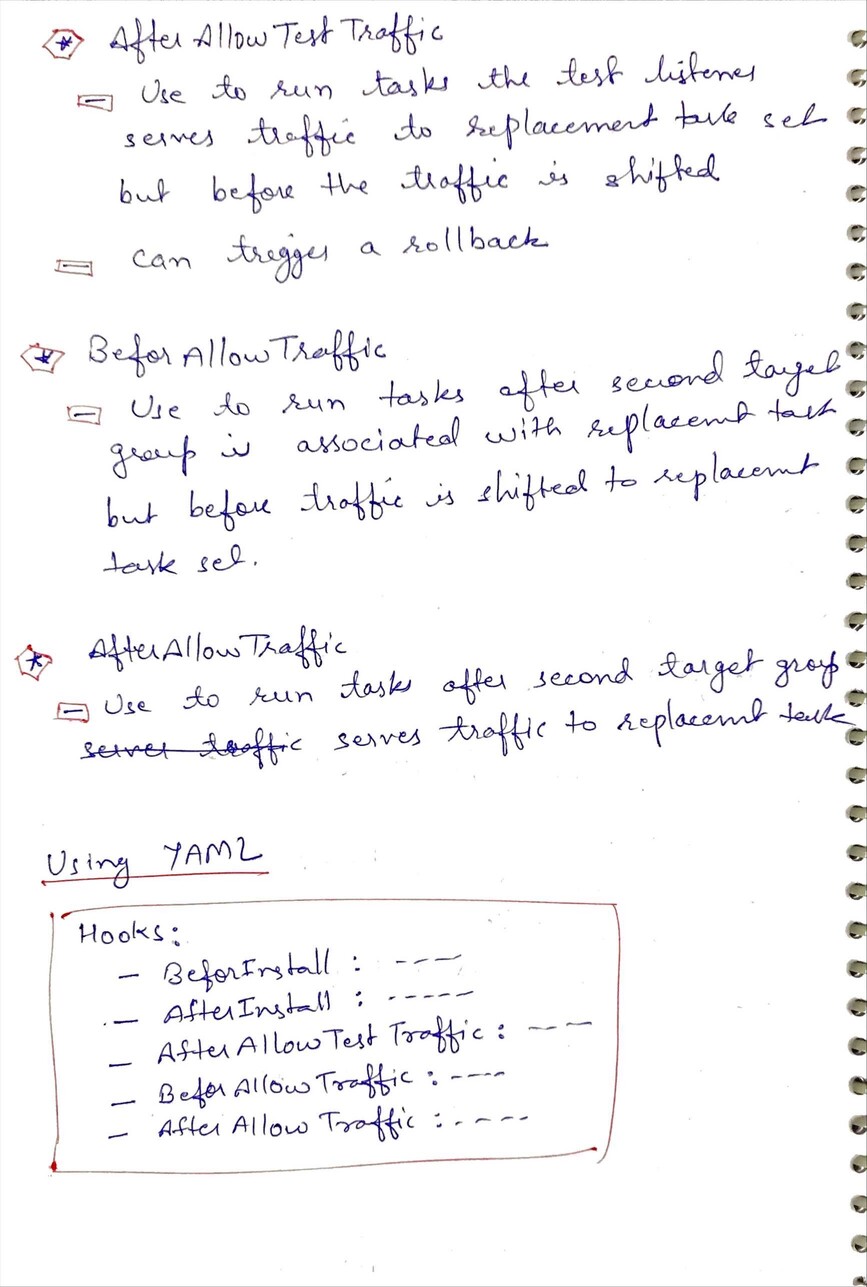 After Allow Test Traffic
Use to run tasks the test listener
serves traffic to replacement task set
but before the traffic is shifted
can tregger a rollback
Befor Allow Traffic
Use to run tasks after second target
group is associated with replacemt task
but before traffic is shifted to replacemt
task set.
After Allow Traffic
Use to run tasks after second target group
server traffic serves traffic to replacemt task
Using YAML
Hooks:
- BeforInstall : ---
- AfterInstall : -----
- After Allow Test Traffic : ---
- Befor Allow Traffic : ----
- After Allow Traffic : ----